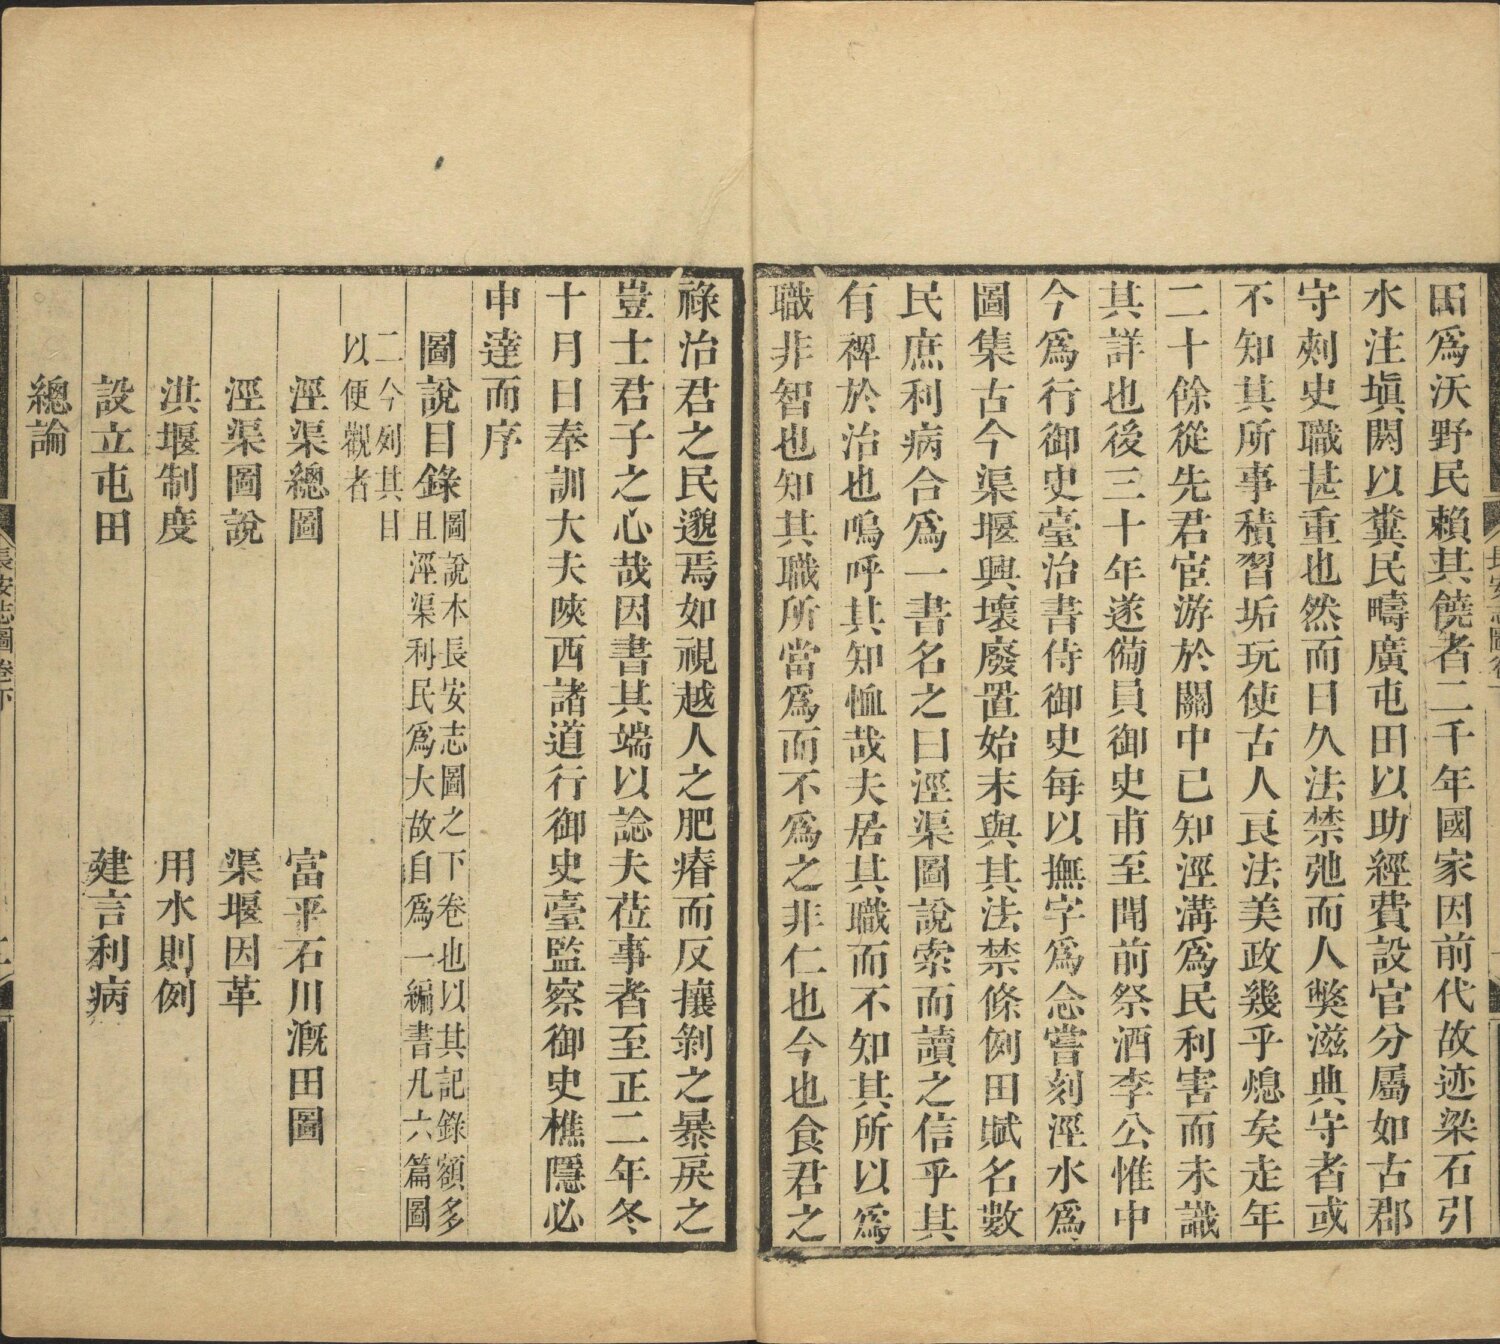 田爲沃野民賴其饒者二千年國家因前代故迹梁石引
水注塡閼以糞民疇廣屯田以助經費設官分屬如古郡
守刺史職甚重也然而日久法禁弛而人獘滋典守者或
不知其所事積習垢玩使古人良法美政幾乎熄矣走年
二十餘從先君宦游於關中已知涇溝爲民利害而未識
其詳也後三十年遂僃員御史甫至聞前祭酒李公惟中
今爲行御史臺治書侍御史每以撫字爲念嘗刻涇水爲
圖集古今渠堰興壞廢置始末與其法禁條例田賦名數
民庶利病合爲一書名之曰涇渠圖說索而讀之信乎其
有裨於治也嗚呼其知恤哉夫居其職而不知其所以爲
職非智也知其職所當爲而不爲之非仁也今也食君之
長安志圖卷下
祿治君之民邈焉如視越人之肥瘠而反攘剝之暴戾之
豈士君子之心哉因書其端以諗夫莅事者至正二年冬
十月日奉訓大夫陝西諸道行御史臺監察御史樵隱必
申達而序
圖說目錄圖說本長安志圖之下卷也以其記錄額多
且涇渠利民爲大故自爲一編書凡六篇圖
二今列其目
以便觀者
涇渠總圖　富平石川漑田圖
涇渠圖說　渠堰因革
洪堰制度　用水則例
設立屯田　建言利病
總論
長安志圖卷下　二